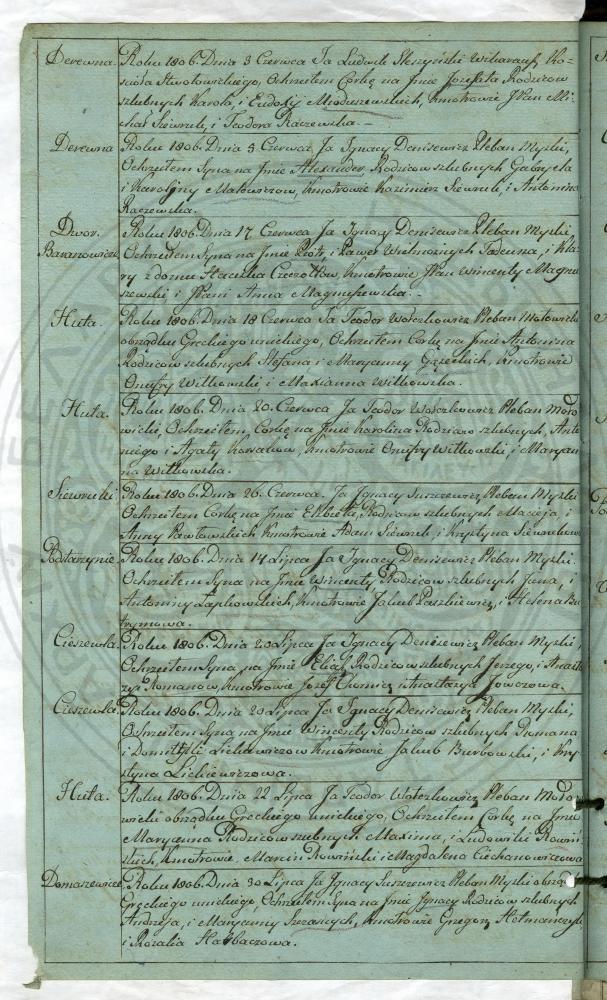 Derewna. Roku 1806. Dnia 3 Czerwca Ja Ludwik Skszyński Wikaryusz Ko-
ścioła Stwołowickiego, Ochrzciłem Corkę na Jmie Jozefata Rodzicow
szlubnych Karola, i Eudoxij Mioduszewskich, Kmotrowie JPan Mi-
chał Siewruk, i Teodora Raczewska.
Derewna Roku 1806. Dnia 3. Czerwca, Ja Jgnacy Denisewicz Pleban Myski,
Ochrzciłem Syna na Jmie Alexander, Rodzicow szlubnych Gabryela
i Karoliny Matowiczow, Kmotrowie Kazimierz Siewruk, i Antonina
Raczewska.
Dwor. Roku 1806. Dnia 17 Czerwca Ja Jgnacy Denisewicz Pleban Myski,
Baranowicze. Ochrzciłem Syna na Jmie Piotr, i Paweł Wielmożnych Tadeusza, i Kla-
ry z domu Czeczottow, Kmotrowie JPan Wincenty Magnu-
szewski i JPani Anna Magnuszewska.
Huta. Roku 1806. Dnia 18 Czerwca Ja Teodor Wołczkowicz Pleban
obrządku Greckiego unickiego, Ochrzciłem Corkę na Jmie Antonina
Rodzicow szlubnych Stefana i Maryanny Kmotrowie
Onufry Witkowski i Maxianna Witkowska.
Huta. Roku 1806. Dnia 20. Czerwca Ja Teodor Wołczkowicz Pleban Moło-
wicki, Ochrzciłem, Corkę na Jmie Karolina Rodzicow szlubnych, Anto-
niego i Agaty Kmotrowie Onufry Witkowski, i Maryan-
na Witkowska.
Siewruki Roku 1806. Dnia 26. Czerwca. Ja Jgnacy Suszczewicz Pleban Myski
Ochrzciłem Corkę na Jmie Elżbieta, Rodzicow szlubnych Macieja i
Anny Pawłowskich Kmotrowie Adam Siewruk, i Krystyna Siewrukowa
Roku 1806. Dnia 14 Lipca Ja Jgnacy Denisewicz Pleban Myski.
Ochrzciłem Syna na Jmie Wincenty, Rodzicow szlubnych Jana, i
Antoniny Łapkowskich, Kmotrowie Jakub Paszkiewicz, i Helena Bu-
trymowa.
Cieszewla. Roku 1806. Dnia 20 Lipca Ja Jgnacy Denisewicz Pleban Myski,
Ochrzciłem Syna, na Jmie Eliasz, Rodzicow szlubnych Jerzego, i Anasta-
zyi Romanow, Kmotrowie Jozef Chomicz i Anastazya Jowczowa.
Cieszewla. Roku 1806. Dnia 20 Lipca, Ja Jgnacy Denisewicz, Pleban Myski,
Ochrzciłem Syna na Jmie Wincenty Rodzicow szlubnych Romana
i Domitylli Lickiewiczow Kmotrowie Jakub Burbowski, i Kry-
styna Lickiewiczowa.
Huta. Roku 1806. Dnia 22 Lipca, Ja Teodor Wołczkowicz, Pleban Moło-
wicki obrządku Greckiego unickiego, Ochrzciłem Corkę, na Jmie
Maryanna Rodzicow szlubnych Maxima, i Ludowiki Rowiń-
skich, Kmotrowie, Marcin Rowiński i Magdalena Ciechanowiczowa
Domaszewicze. Roku 1806. Dnia 30 Lipca Ja Jgnacy Suszczewicz Pleban Myski obrządku
Greckiego unickiego, Ochrzciłem Syna na Jmie Jgnacy Rodzicow szlubnych
Andrzeja, i Maryanny Szczasnych, Kmotrowie Grzegorz Hetmanczyk
i Rozalia Harbaczowa.